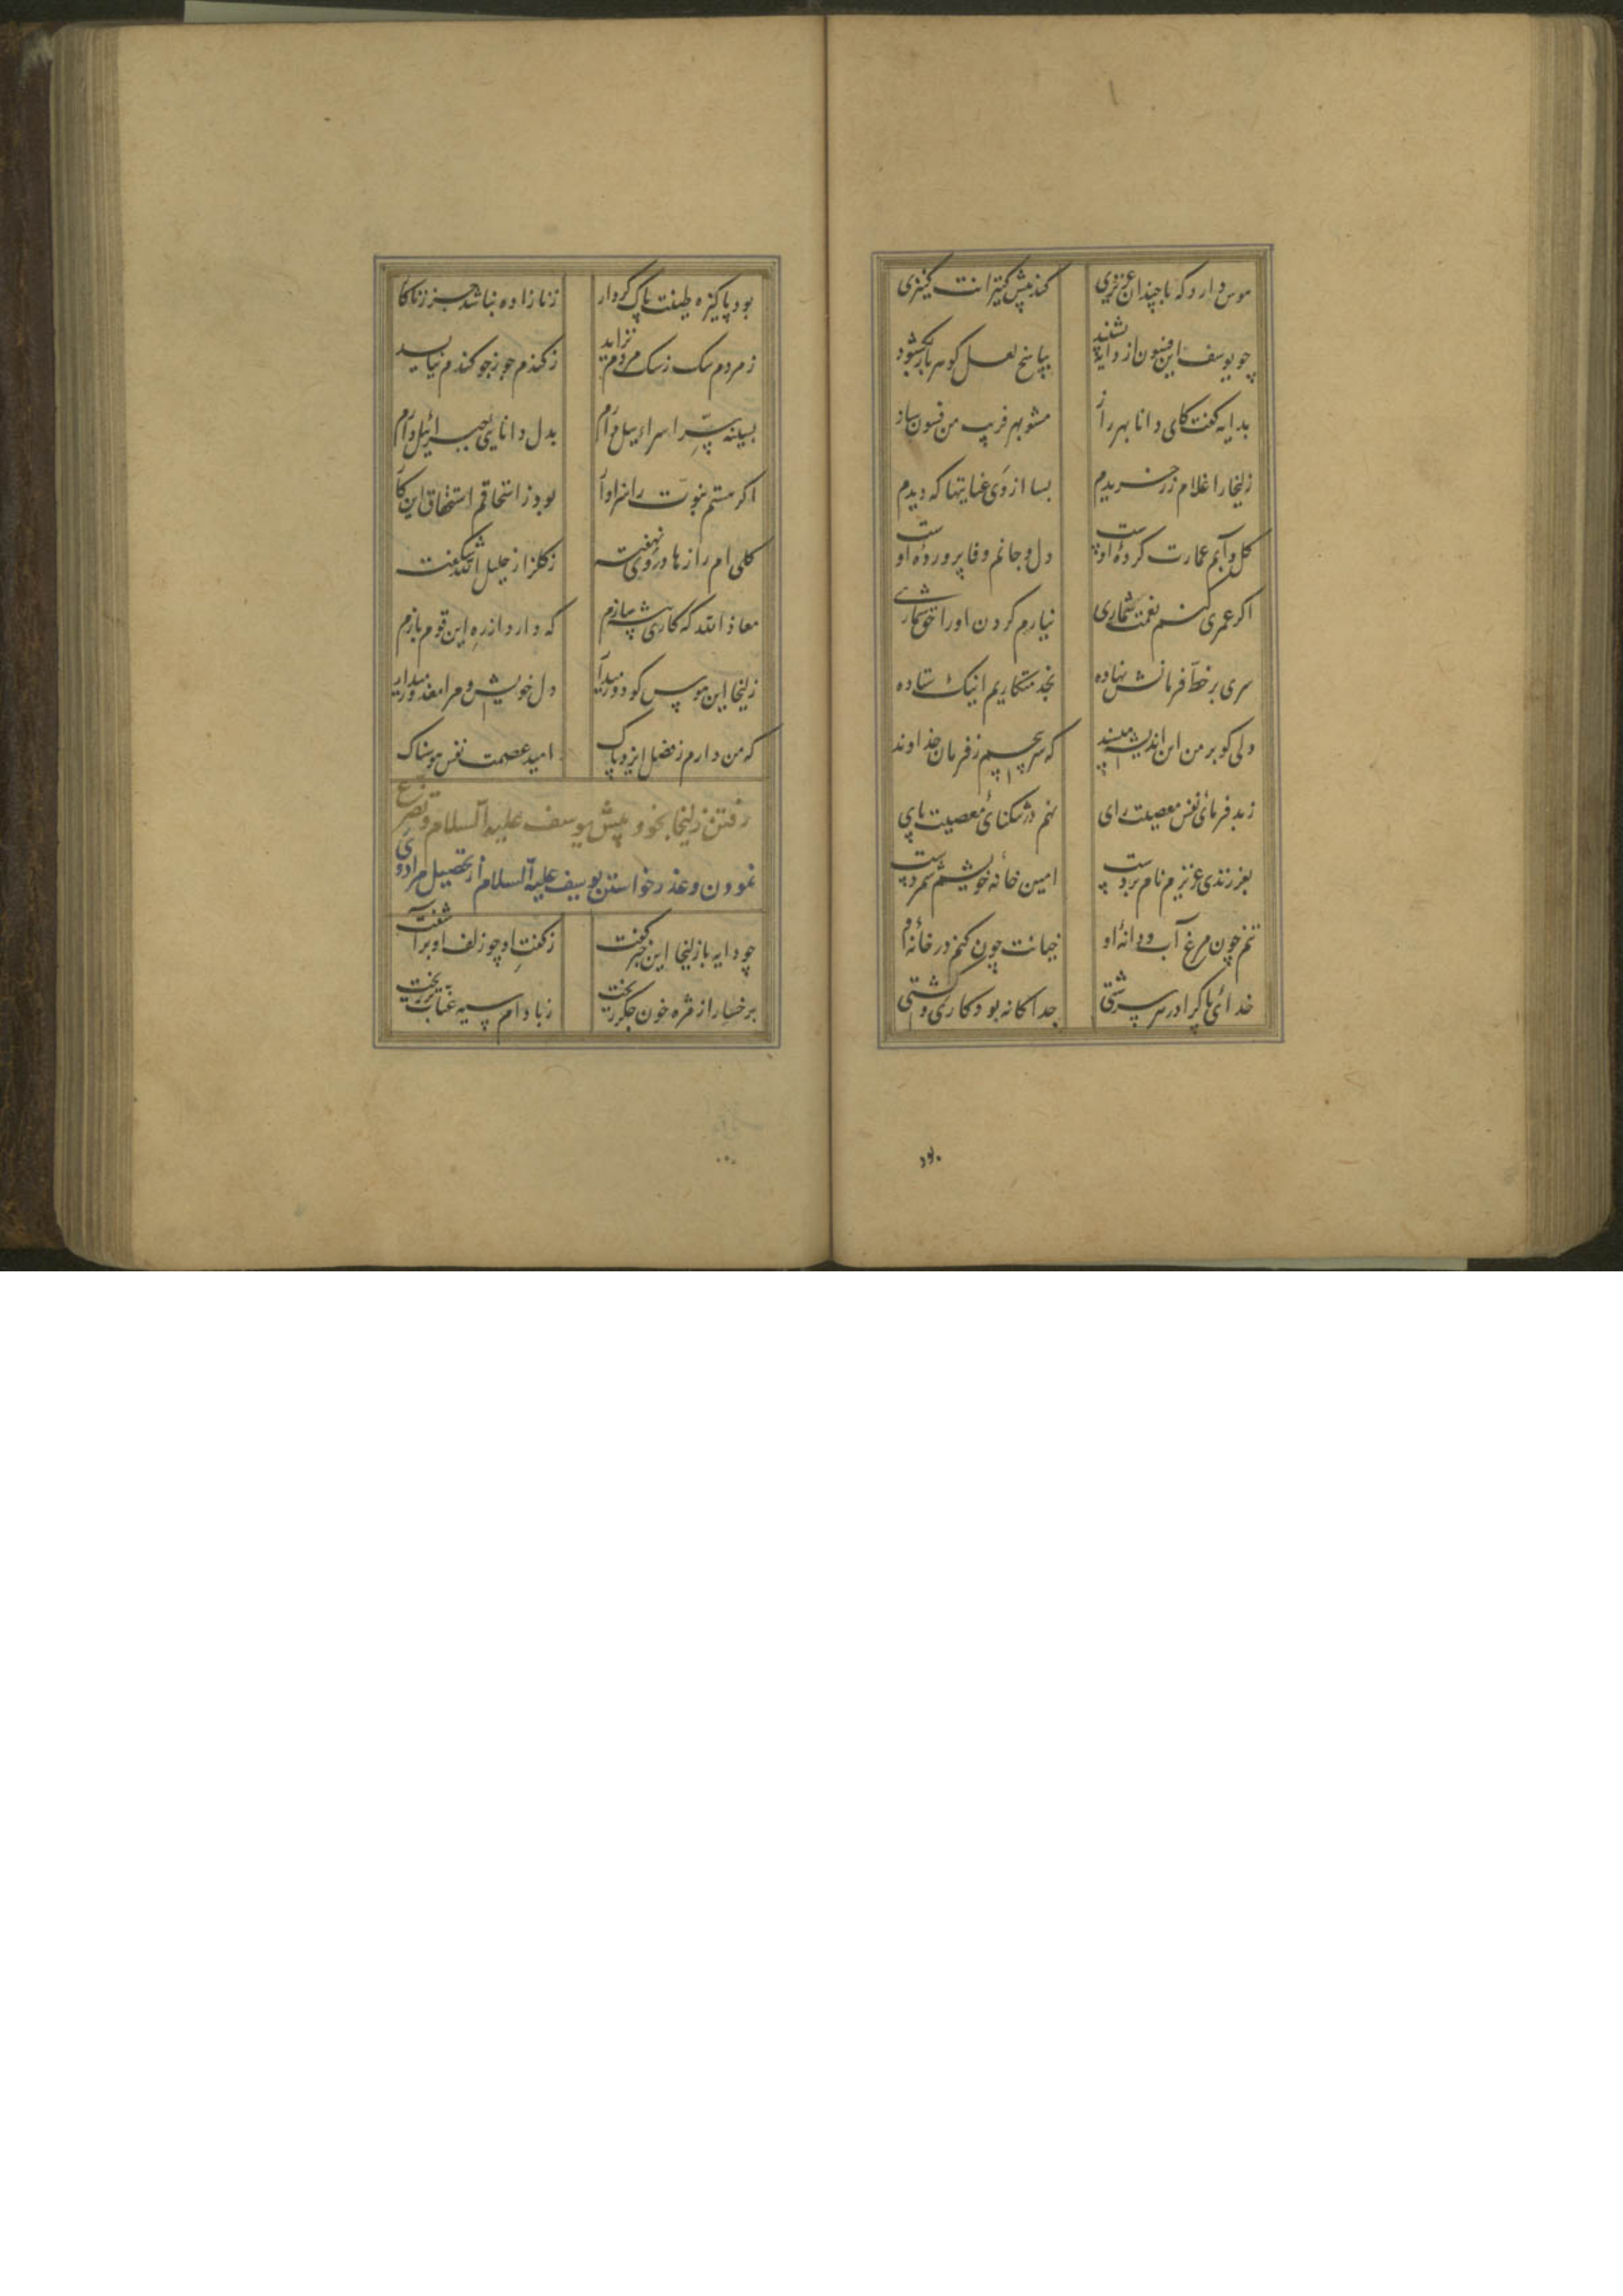 هوس دارد که با چندان عزیزی کند پیش کنیزانت کنیزی
چو یوسف این فسون از دایه بشنید بپاسخ لعل گوهربار بگشود
بدایه گفت کای دانا بهر راز مشو بهر فریب من فسون ساز
زلیخا را غلام زرخریدم بسا از وی عنایتها که دیدم
گل و آبم عمارت کردهٔ اوست دل و جانم وفا پروردهٔ اوست
اگر عمری کنم نعمت شماری نیارم کردن او را حق شماری
سری بر خطّ فرمانش نهاده بخدمتکاریم اینک ستاده
ولی گو بر من این اندیشه مپسند که سر پیچم ز فرمان خداوند
ز بدفرمای نفس معصیت رای نهم در تنگنای معصیت پای
بفرزندی عزیزم نام بردست امین خانهٔ خویشم شمردست
نیم چون مرغ آب و دانهٔ او خیانت چون کنم در خانهٔ او
خدای پاک را در هر سرشتی جداگانه بود کاری و کشتی
بود پاکیزه طینت پاک کردار زنازاده نباشد جز زناکار
ز مردم سگ ز سگ مردم نزاید ز گندم جو ز جو گندم نیاید
بسینه سِرّ اسرائیل دارم بدل دانایی جبرائیل دارم
اگر هستم نبوّت را سزاوار بود ز اسحاقم استحقاق این کار
گلی ام رازها در وی نهفته ز گلزار خلیل الله شکفته
معاذ الله که کاری پیش سازم که دارد از ره این قوم بازم
زلیخا این هوس گو دور میدار دل خویش و مرا معذور میدار
که من دارم ز فضل ایزد پاک امید عصمت نفس هوسناک
رفتن زلیخا بخود پیش یوسف علیه السلام و تضرع
نمودن و عذر خواستن یوسف علیه السلام از تحصیل مراد وی
چو دایه با زلیخا این خبر گفت ز گفتِ او چو زلف او برآشفت
برخسار از مژه خون جگر ریخت ز بادام سیه عنّاب تر ریخت